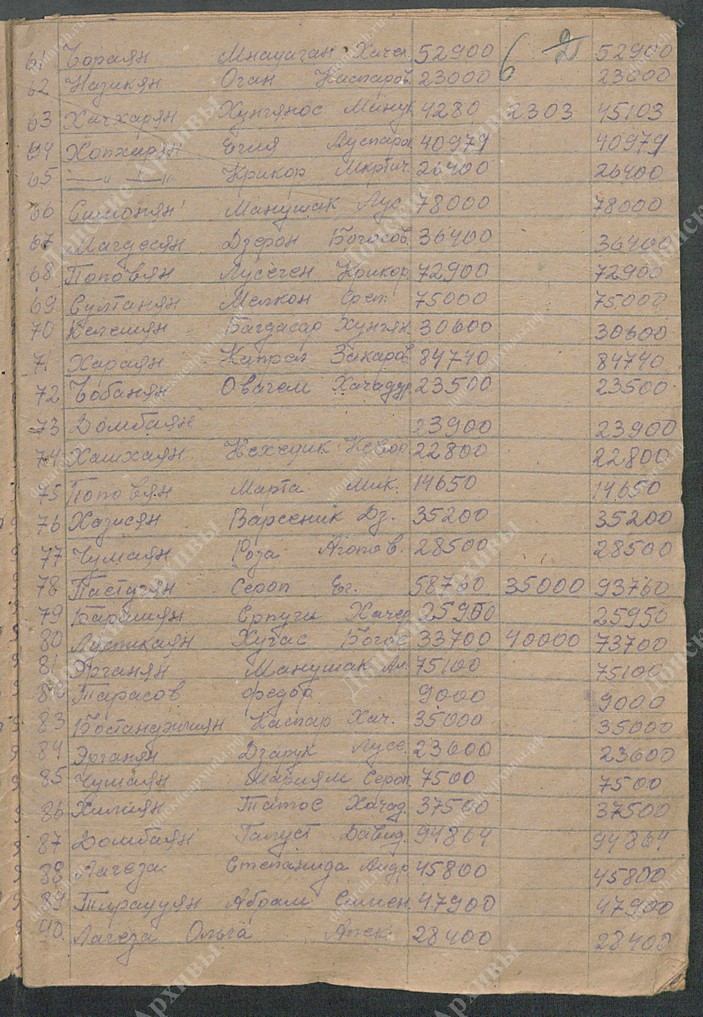 6 2
61 Чораян Мнацаган Хачат. 52900 52900
62 Назикян Оган Каспаров. 23000 23000
63 Хачхарян Хунгянос Манук 4280 2303 45103
64 Хопхарян Егия Луспарон 40979 40979
65 —„— „ Крикор Мкртич. 26400 26400
66 Симонян Манушак Лус. 78000 78000
67 Магдесян Дзерон Богосов. 36400 36400
68 Поповян Лусеген Крикор. 72900 72900
69 Султанян Мелкон Срет. 75000 75000
70 Багдасар Хунгян. 30600 30600
71 Хараян Капрел Закаров. 84740 84740
72 Чобанян Овагем Хачадур. 23500 23500
73 Домбаян 23900 23900
74 Хашхаян Кевор. 22800 22800
75 Поповян Марта Мик. 14650 14650
76 Хазизян Варсеник Дз. 35200 35200
77 Чумаян Роза Агопов. 28500 28500
78 Пастугян Сероп Ег. 58760 35000 93760
79 Барашян Српуги Хачер 25950 25950
80 Лустикаян Хугас Богос. 33700 40000 73700
81 Эрганян Манушак Ал. 75100 75100
82 Тарасов Федор 9000 9000
83 Бостанджиян Каспар Хач. 35000 35000
84 Эрганян Дзарук Лусе. 23600 23600
85 Чумаян Мариям Сероп. 7500 7500
86 Хилиян Татос Хачад. 37500 37500
87 Домбаян Галуст Давид. 94864 94864
88 Лагеза Степанида Андр. 45800 45800
89 Тирацуян Абрам Симен. 47900 47900
90. Лагеза Ольга Алек. 28400 28400